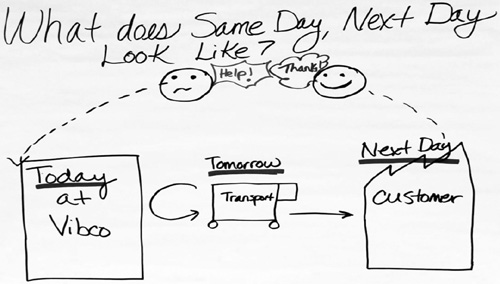 What does Same Day, Next Day
Look Like?
Help!
Thanks!
Today
at
Vibco
Tomorrow
Transport
Next Day
Customer